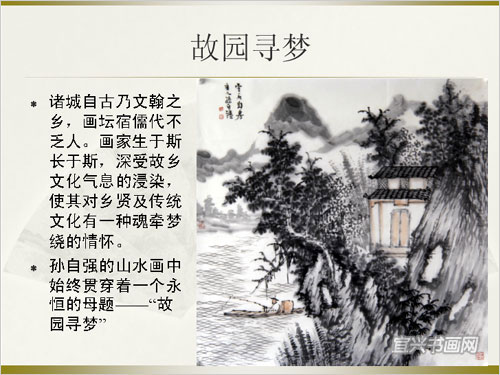 故园寻梦
诸城自古乃文翰之
乡，画坛宿儒代不
乏人。画家生于斯
长于斯，深受故乡
文化气息的浸染，
使其对乡贤及传统
文化有一种魂牵梦
绕的情怀。
孙自强的山水画中
始终贯穿着一个永
恒的母题——“故
园寻梦”
宜兴书画网